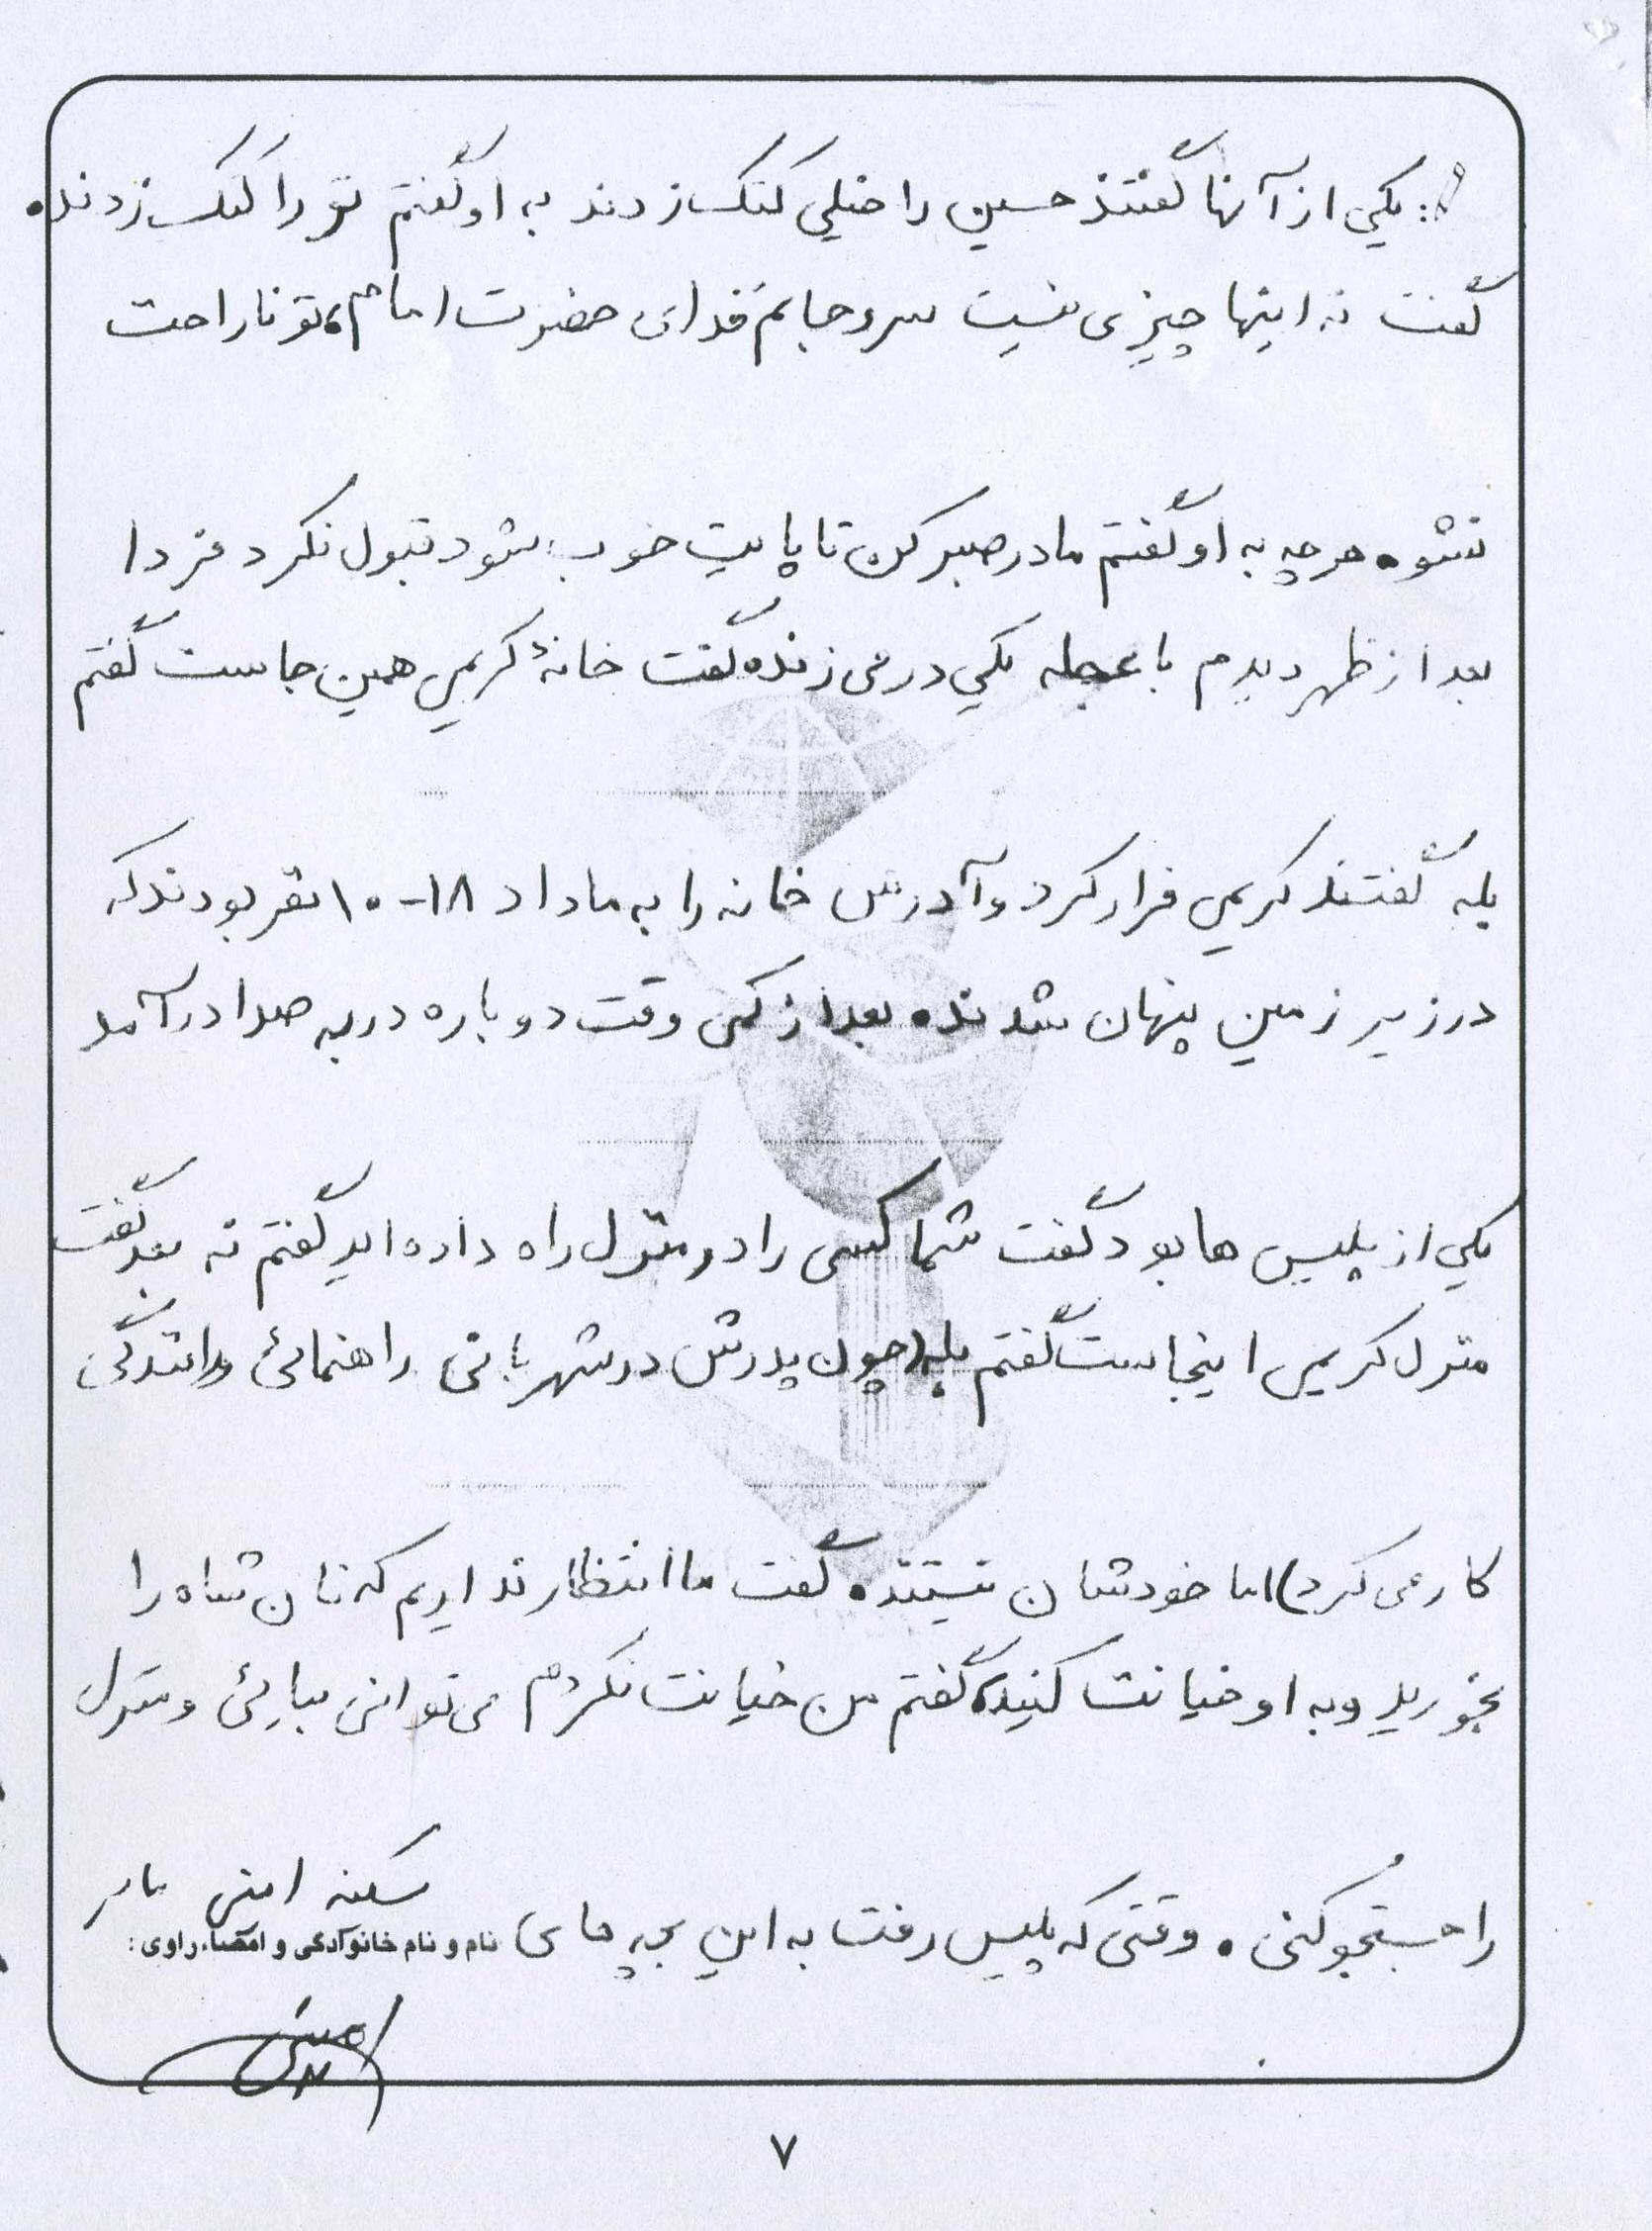 یکی از آنها گفتند حسین را خیلی کتک زدند به او گفتم تو را کتک زدند.
گفت نه اینها چیزی نیست سرو جانم فدای حضرت امام، تو ناراحت
نشو. هر چه به او گفتم مادر صبر کن تا پایت خوب شود قبول نکرد فردا
بعد از ظهر دیدم با عجله یکی در می زند. گفت خانهٔ کریمی همین جاست گفتم
بله گفتند کریمی فرار کرد و آدرس خانه را به ما داد ۱۸-۱۰ نفر بودند که
در زیر زمین پنهان شدند. بعد از کمی وقت دوباره در به صدا در آمد
یکی از پلیس ها بود گفت شما کسی را در منزل راه داده اید گفتم نه بعد گفت
منزل کریمی اینجاست گفتم بله (چون پدرش در شهربانی راهنمائی و رانندگی
کار می کرد) اما خودشان نیستند. گفت ما انتظار نداریم که نان شاه را
بخورید و به او خیانت کنید. گفتم من خیانت نکردم می توانی بیایی و منزل
را جستجو کنی. وقتی که پلیس رفت به این بچه های
سکینه امینی
نام و نام خانوادگی و امضاء راوی:
۷